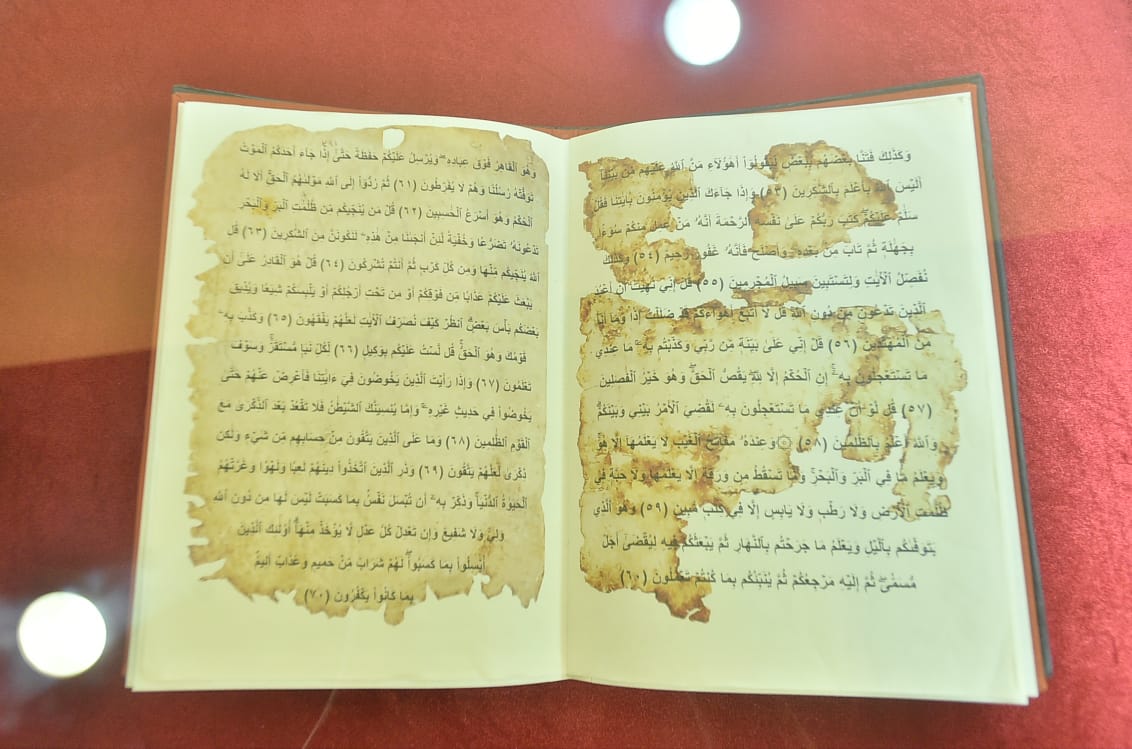 وَكَذَٰلِكَ فَتَنَّا بَعْضَهُم بِبَعْضٍ لِّيَقُولُوٓا۟ أَهَٰٓؤُلَآءِ مَنَّ ٱللَّهُ عَلَيْهِم مِّنۢ بَيْنِنَآ
أَلَيْسَ ٱللَّهُ بِأَعْلَمَ بِٱلشَّٰكِرِينَ (٥٣) وَإِذَا جَآءَكَ ٱلَّذِينَ يُؤْمِنُونَ بِـَٔايَٰتِنَا فَقُلْ
سَلَٰمٌ عَلَيْكُمْ كَتَبَ رَبُّكُمْ عَلَىٰ نَفْسِهِ ٱلرَّحْمَةَ أَنَّهُۥ مَنْ عَمِلَ مِنكُمْ سُوٓءًۢا
بِجَهَٰلَةٍ ثُمَّ تَابَ مِنۢ بَعْدِهِۦ وَأَصْلَحَ فَأَنَّهُۥ غَفُورٌ رَّحِيمٌ (٥٤) وَكَذَٰلِكَ
نُفَصِّلُ ٱلْـَٔايَٰتِ وَلِتَسْتَبِينَ سَبِيلُ ٱلْمُجْرِمِينَ (٥٥) قُلْ إِنِّى نُهِيتُ أَنْ أَعْبُدَ
ٱلَّذِينَ تَدْعُونَ مِن دُونِ ٱللَّهِ قُل لَّآ أَتَّبِعُ أَهْوَآءَكُمْ قَدْ ضَلَلْتُ إِذًا وَمَآ أَنَا۠
مِنَ ٱلْمُهْتَدِينَ (٥٦) قُلْ إِنِّى عَلَىٰ بَيِّنَةٍ مِّن رَّبِّى وَكَذَّبْتُم بِهِۦ مَا عِندِى
مَا تَسْتَعْجِلُونَ بِهِۦٓ إِنِ ٱلْحُكْمُ إِلَّا لِلَّهِ يَقُصُّ ٱلْحَقَّ وَهُوَ خَيْرُ ٱلْفَٰصِلِينَ
(٥٧) قُل لَّوْ أَنَّ عِندِى مَا تَسْتَعْجِلُونَ بِهِۦ لَقُضِىَ ٱلْأَمْرُ بَيْنِى وَبَيْنَكُمْ
وَٱللَّهُ أَعْلَمُ بِٱلظَّٰلِمِينَ (٥٨) ۞ وَعِندَهُۥ مَفَاتِحُ ٱلْغَيْبِ لَا يَعْلَمُهَآ إِلَّا هُوَ
وَيَعْلَمُ مَا فِى ٱلْبَرِّ وَٱلْبَحْرِ وَمَا تَسْقُطُ مِن وَرَقَةٍ إِلَّا يَعْلَمُهَا وَلَا حَبَّةٍ فِى
ظُلُمَٰتِ ٱلْأَرْضِ وَلَا رَطْبٍ وَلَا يَابِسٍ إِلَّا فِى كِتَٰبٍ مُّبِينٍ (٥٩) وَهُوَ ٱلَّذِى
يَتَوَفَّىٰكُم بِٱلَّيْلِ وَيَعْلَمُ مَا جَرَحْتُم بِٱلنَّهَارِ ثُمَّ يَبْعَثُكُمْ فِيهِ لِيُقْضَىٰٓ أَجَلٌ
مُّسَمًّى ثُمَّ إِلَيْهِ مَرْجِعُكُمْ ثُمَّ يُنَبِّئُكُم بِمَا كُنتُمْ تَعْمَلُونَ (٦٠)
وَهُوَ ٱلْقَاهِرُ فَوْقَ عِبَادِهِۦ وَيُرْسِلُ عَلَيْكُمْ حَفَظَةً حَتَّىٰٓ إِذَا جَآءَ أَحَدَكُمُ ٱلْمَوْتُ
تَوَفَّتْهُ رُسُلُنَا وَهُمْ لَا يُفَرِّطُونَ (٦١) ثُمَّ رُدُّوٓا۟ إِلَى ٱللَّهِ مَوْلَىٰهُمُ ٱلْحَقِّ أَلَا لَهُ
ٱلْحُكْمُ وَهُوَ أَسْرَعُ ٱلْحَٰسِبِينَ (٦٢) قُلْ مَن يُنَجِّيكُم مِّن ظُلُمَٰتِ ٱلْبَرِّ وَٱلْبَحْرِ
تَدْعُونَهُۥ تَضَرُّعًا وَخُفْيَةً لَّئِنْ أَنجَىٰنَا مِنْ هَٰذِهِۦ لَنَكُونَنَّ مِنَ ٱلشَّٰكِرِينَ (٦٣) قُلِ
ٱللَّهُ يُنَجِّيكُم مِّنْهَا وَمِن كُلِّ كَرْبٍ ثُمَّ أَنتُمْ تُشْرِكُونَ (٦٤) قُلْ هُوَ ٱلْقَادِرُ عَلَىٰٓ أَن
يَبْعَثَ عَلَيْكُمْ عَذَابًا مِّن فَوْقِكُمْ أَوْ مِن تَحْتِ أَرْجُلِكُمْ أَوْ يَلْبِسَكُمْ شِيَعًا وَيُذِيقَ
بَعْضَكُم بَأْسَ بَعْضٍ ٱنظُرْ كَيْفَ نُصَرِّفُ ٱلْـَٔايَٰتِ لَعَلَّهُمْ يَفْقَهُونَ (٦٥) وَكَذَّبَ بِهِۦ
قَوْمُكَ وَهُوَ ٱلْحَقُّ قُل لَّسْتُ عَلَيْكُم بِوَكِيلٍ (٦٦) لِّكُلِّ نَبَإٍ مُّسْتَقَرٌّ وَسَوْفَ
تَعْلَمُونَ (٦٧) وَإِذَا رَأَيْتَ ٱلَّذِينَ يَخُوضُونَ فِىٓ ءَايَٰتِنَا فَأَعْرِضْ عَنْهُمْ حَتَّىٰ
يَخُوضُوا۟ فِى حَدِيثٍ غَيْرِهِۦ وَإِمَّا يُنسِيَنَّكَ ٱلشَّيْطَٰنُ فَلَا تَقْعُدْ بَعْدَ ٱلذِّكْرَىٰ مَعَ
ٱلْقَوْمِ ٱلظَّٰلِمِينَ (٦٨) وَمَا عَلَى ٱلَّذِينَ يَتَّقُونَ مِنْ حِسَابِهِم مِّن شَىْءٍ وَلَٰكِن
ذِكْرَىٰ لَعَلَّهُمْ يَتَّقُونَ (٦٩) وَذَرِ ٱلَّذِينَ ٱتَّخَذُوا۟ دِينَهُمْ لَعِبًا وَلَهْوًا وَغَرَّتْهُمُ
ٱلْحَيَوٰةُ ٱلدُّنْيَا وَذَكِّرْ بِهِۦٓ أَن تُبْسَلَ نَفْسٌۢ بِمَا كَسَبَتْ لَيْسَ لَهَا مِن دُونِ ٱللَّهِ
وَلِىٌّ وَلَا شَفِيعٌ وَإِن تَعْدِلْ كُلَّ عَدْلٍ لَّا يُؤْخَذْ مِنْهَآ أُو۟لَٰٓئِكَ ٱلَّذِينَ
أُبْسِلُوا۟ بِمَا كَسَبُوا۟ لَهُمْ شَرَابٌ مِّنْ حَمِيمٍ وَعَذَابٌ أَلِيمٌۢ
بِمَا كَانُوا۟ يَكْفُرُونَ (٧٠)